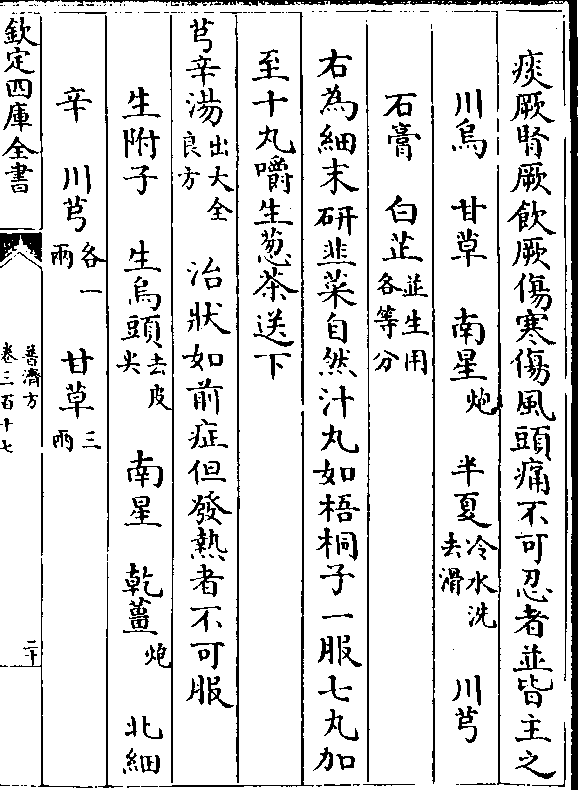 痰厥腎厥飲厥傷寒傷風頭痛不可忍者並皆主之
川烏 甘草 南星炮 半夏冷水洗去滑 川芎
石膏 白芷並生用各等分
右為細末研韮菜自然汁丸如梧桐子一服七丸加
至十丸嚼生葱茶送下
芎辛湯出大全良方 治狀如前症但發熱者不可服
生附子 生烏頭去皮尖 南星 乾薑炮 北細
辛 川芎各一兩 甘草三兩
欽定四庫全書
普濟方
卷三百十七
二十